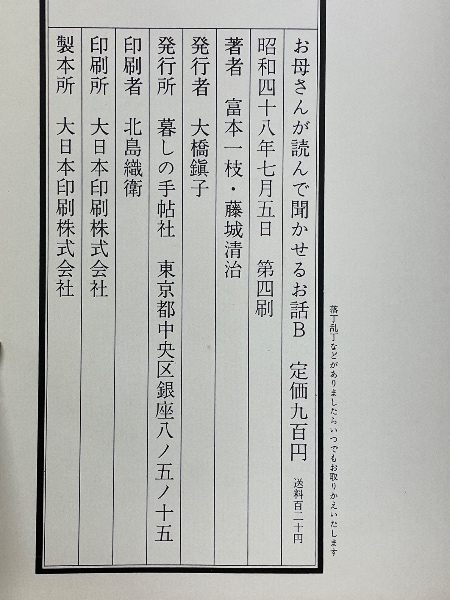 落丁乱丁などがありましたらいつでもお取りかえいたします
お母さんが読んで聞かせるお話B 定価九百円 送料百二十円
昭和四十八年七月五日 第四刷
著者 富本一枝・藤城清治
発行者 大橋鎭子
発行所 暮しの手帖社 東京都中央区銀座八ノ五ノ十五
印刷者 北島織衛
印刷所 大日本印刷株式会社
製本所 大日本印刷株式会社